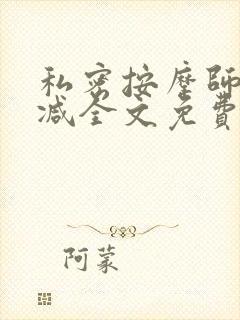 私密按摩師
減全文免費
阿蒙